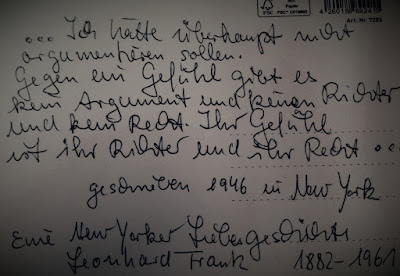 FSC
Papier
FSC® C019892
Art. Nr. 7293
... Ich hätte überhaupt nicht
argumentieren sollen.
Gegen ein Gefühl gibt es
kein Argument und keinen Richter
und kein Recht. Ihr Gefühl
ist ihr Richter und ihr Recht ...
geschrieben 1946 in New York
Eine New Yorker Liebesgeschichte
Leonhard Frank 1882-1961